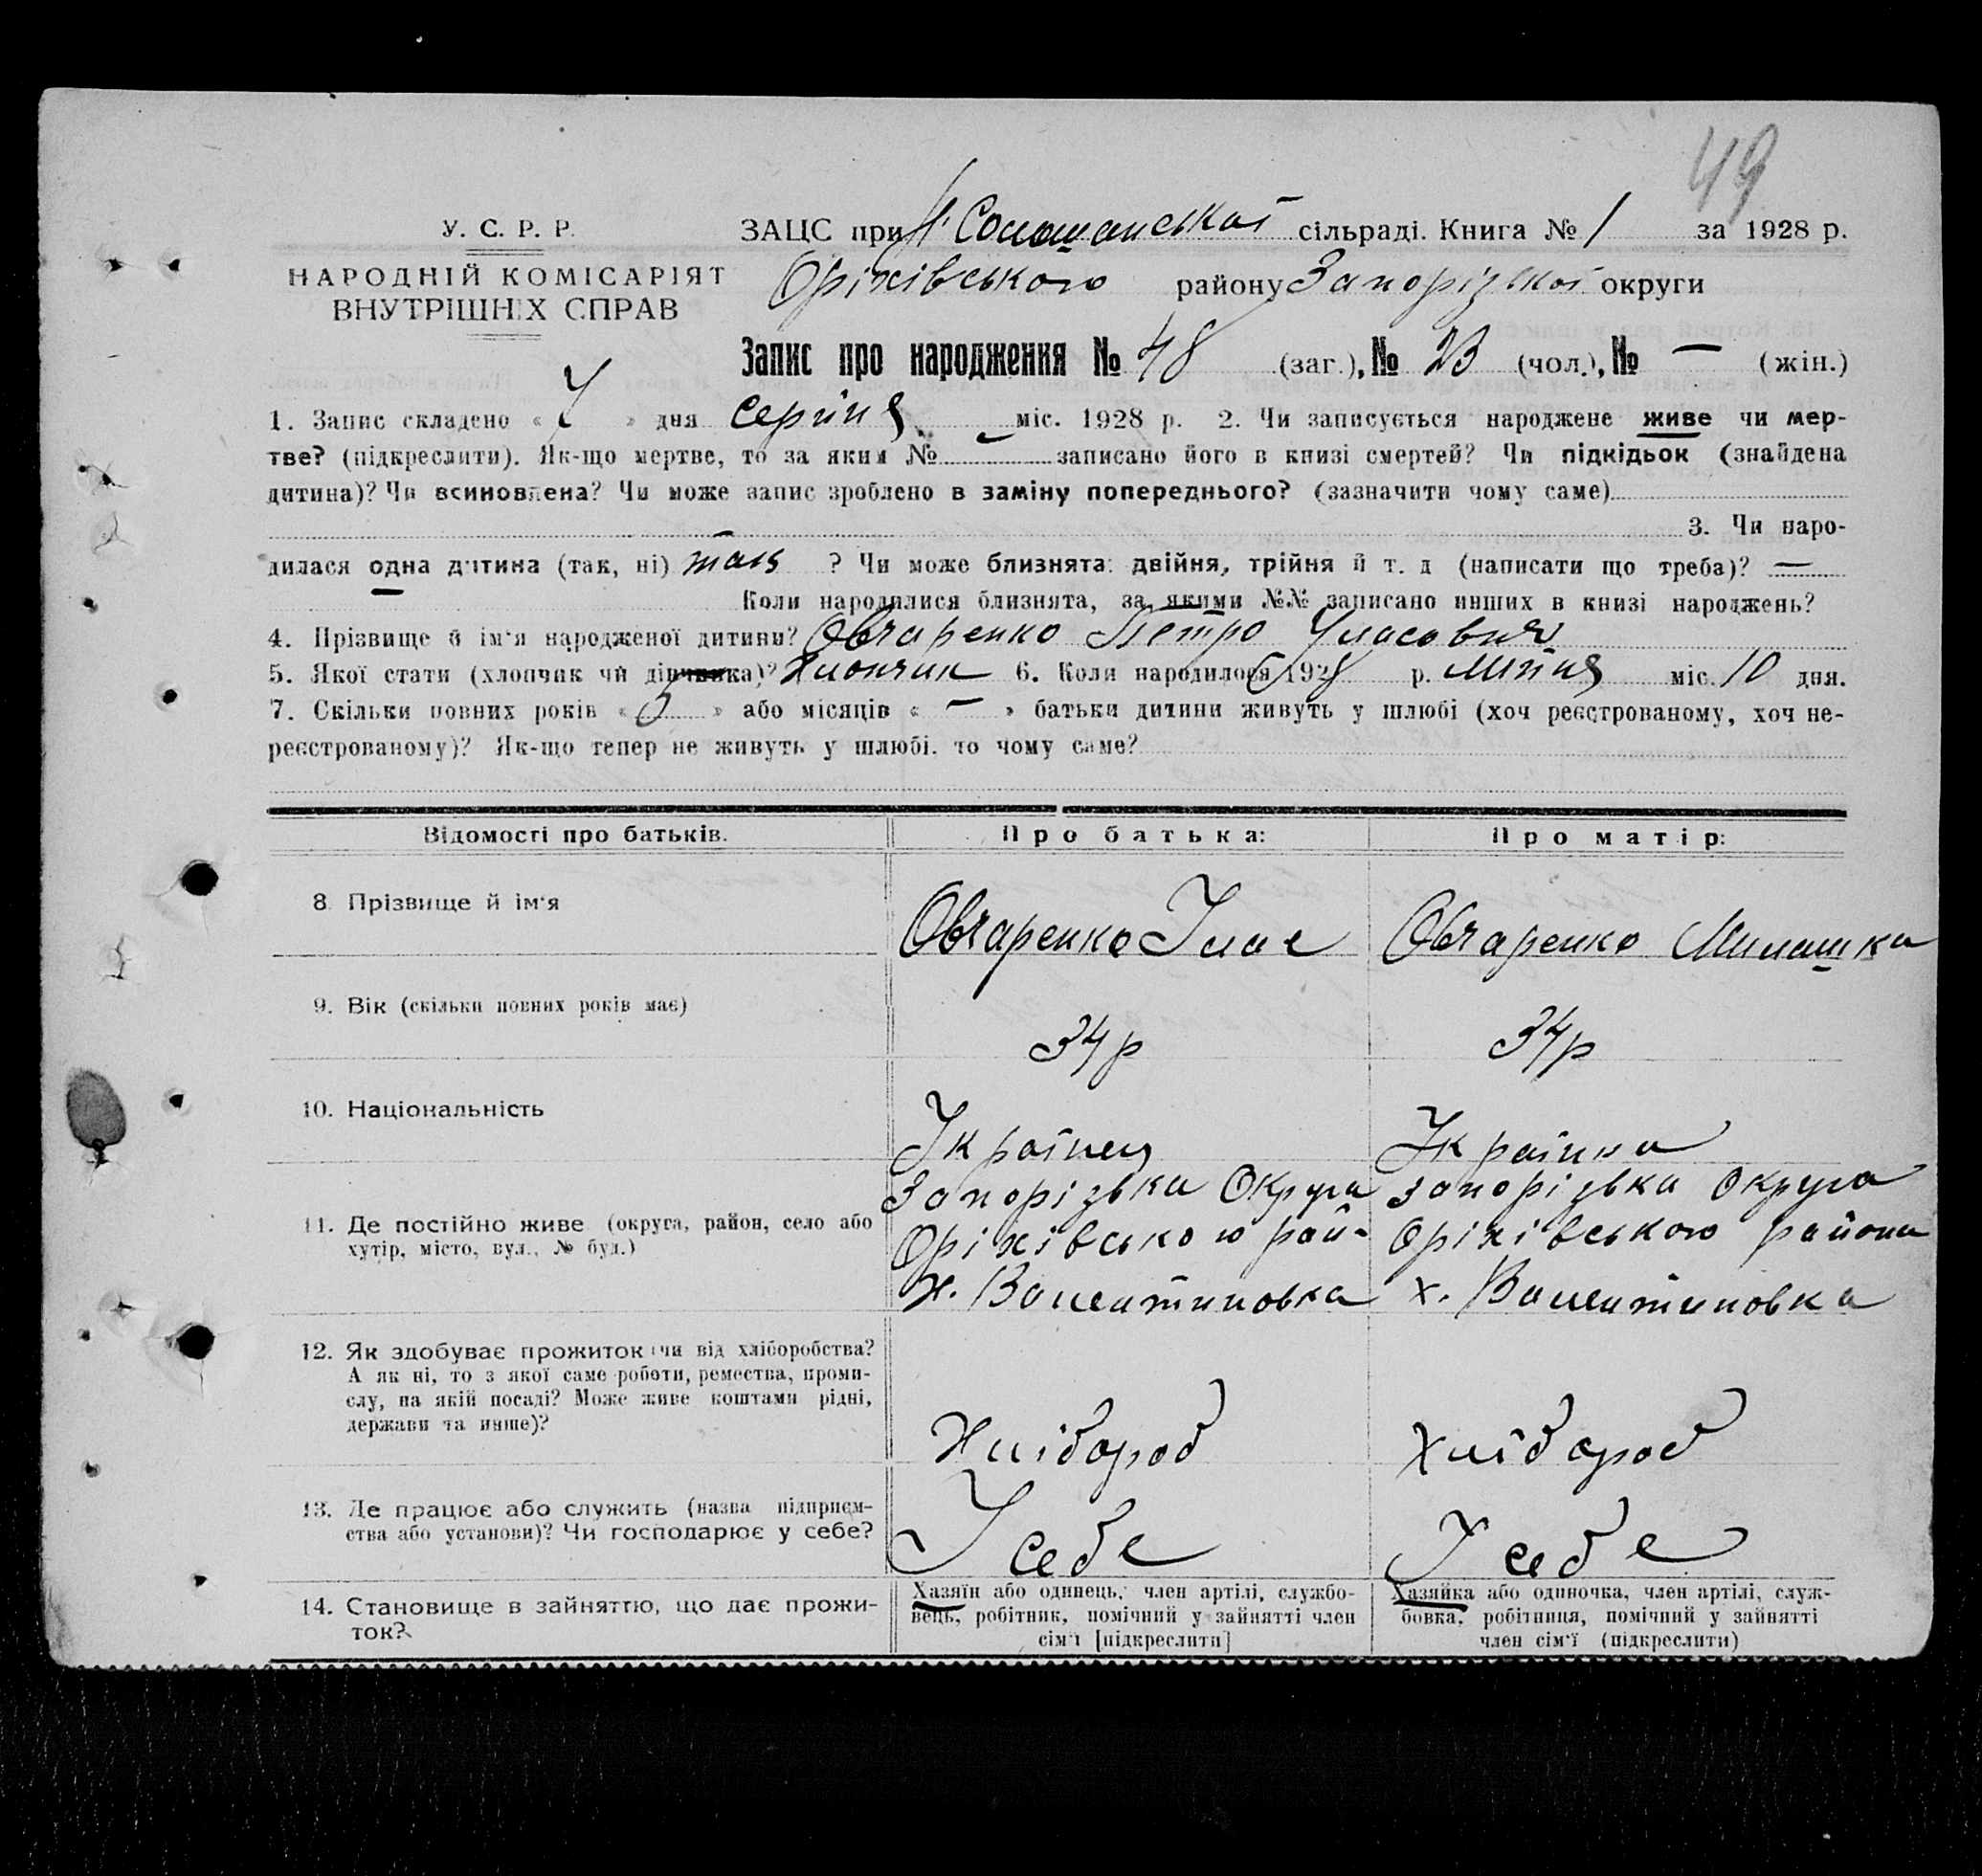 49
У. С. Р. Р.
НАРОДНІЙ КОМІСАРІЯТ
ВНУТРІШНІХ СПРАВ
ЗАЦС при сільраді. Книга № 1 за 1928 р.
Оріхівського району Запорізької округи
Запис про народження № 48 (заг.), № 23 (чол.), № — (жін.)
1. Запис складено « 7 » дня серпня міс. 1928 р. 2. Чи записується народжене живе чи мер-
тве? (підкреслити). Як-що мертве, то за яким № записано його в книзі смертей? Чи підкідьок (знайдена
дитина)? Чи всиновлена? Чи може запис зроблено в заміну попереднього? (зазначити чому саме)
3. Чи наро-
дилася одна дитина (так, ні) так ? Чи може близнята: двійня, трійня й т. д (написати що треба)? —
Коли народилися близнята, за якими №№ записано инших в книзі народжень?
4. Прізвище й ім'я народженої дитини? Овчаренко Петро Уласович
5. Якої стати (хлопчик чи дівчинка)? Хлопчик 6. Коли народилося 1928 р. липня міс. 10 дня.
7. Скільки повних років « 5 » або місяців « — » батьки дитини живуть у шлюбі (хоч реєстрованому, хоч не-
реєстрованому)? Як-що тепер не живуть у шлюбі, то чому саме?
Відомості про батьків. Про батька: Про матір:
8. Прізвище й ім'я Овчаренко Улас Овчаренко Милашка
9. Вік (скільки повних років має) 34р 34р
10. Національність Українец Українка
11. Де постійно живе (округа, район, село або
хутір, місто, вул., № буд.)
Запорізька Округа Запорізька Округа
Оріхівського рай- Оріхівського района
х. Валентиновка х. Валентиновка
12. Як здобуває прожиток (чи від хліборобства?
А як ні, то з якої саме роботи, ремества, проми-
слу, на якій посаді? Може живе коштами рідні,
держави та инше)?
Хлібороб Хлібороб
13. Де працює або служить (назва підприєм-
ства або установи)? Чи господарює у себе?
У себе У себе
14. Становище в зайняттю, що дає прожи-
ток?
Хазяїн або одинець, член артілі, службо-
вець, робітник, помічний у зайнятті член
сім'ї [підкреслити]
Хазяйка або одиночка, член артілі, служ-
бовка, робітниця, помічний у зайнятті
член сім'ї (підкреслити)